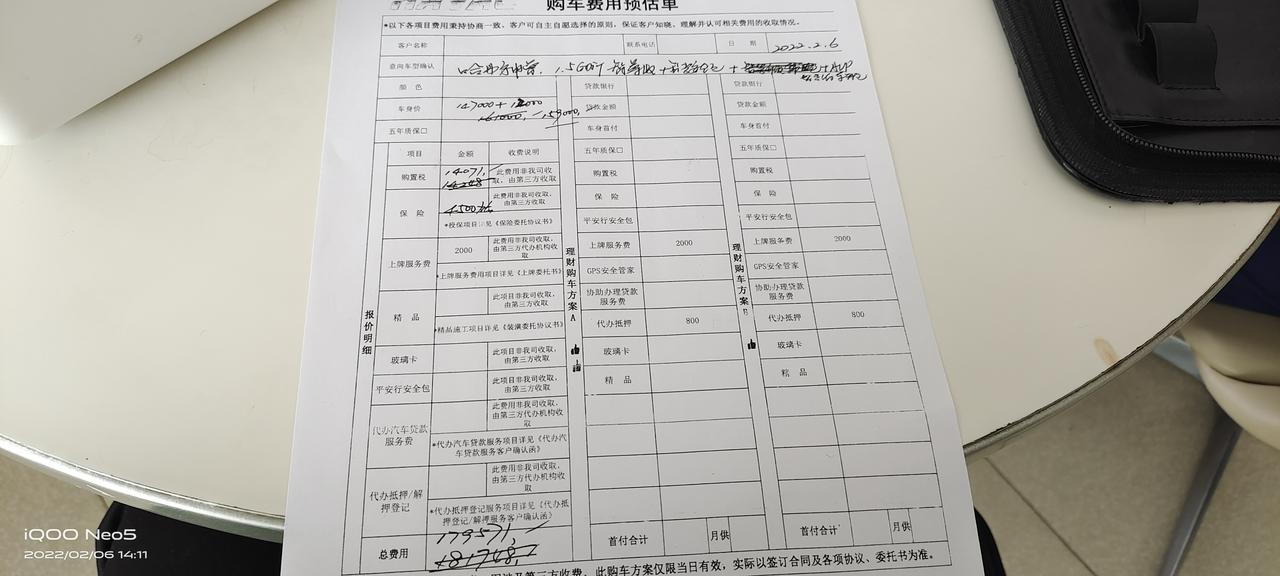 购车费用预估单
*以下各项目费用秉持协商一致、客户可自主自愿选择的原则,保证客户知晓、理解并认可相关费用的收取情况。
客户名称 联系电话 日 期 2022.2.6
意向车型确认
颜 色 贷款银行 贷款银行
车身价 147000+12000 贷款金额 贷款金额
161000, 159000,
五年质保□ 车身首付 车身首付
项目 金额 收费说明 五年质保□ 五年质保□
购置税 14071, 此费用非我司收取,由第三方收取 购置税 购置税
14248
保 险 4500 此费用非我司收取,由第三方收取 保 险 保 险
*投保项目详见《保险委托协议书》 平安行安全包 平安行安全包
上牌服务费 2000 此费用非我司收取,由第三方代办机构收取 上牌服务费 2000 上牌服务费 2000
*上牌服务费用项目详见《上牌委托书》 GPS安全管家 GPS安全管家
精 品 此项目非我司收取,由第三方收取 协助办理贷款服务费 协助办理贷款服务费
*精品施工项目详见《装潢委托协议书》 代办抵押 800 代办抵押 800
报价明细
理财购车方案A
理财购车方案B
玻璃卡 此项目非我司收取,由第三方收取 玻璃卡 玻璃卡
平安行安全包 此项目非我司收取,由第三方收取 精 品 精 品
代办汽车贷款服务费 此费用非我司收取,由第三方代办机构收取
*代办汽车贷款服务项目详见《代办汽车贷款服务客户确认函》
代办抵押/解押登记 此费用非我司收取,由第三方代办机构收取
*代办抵押登记服务项目详见《代办抵押登记/解押服务客户确认函》
总费用 179571, 首付合计 月供 首付合计 月供
181748,
及第三方收费,此购车方案仅限当日有效,实际以签订合同及各项协议、委托书为准。
iQOO Neo5
2022/02/06 14:11